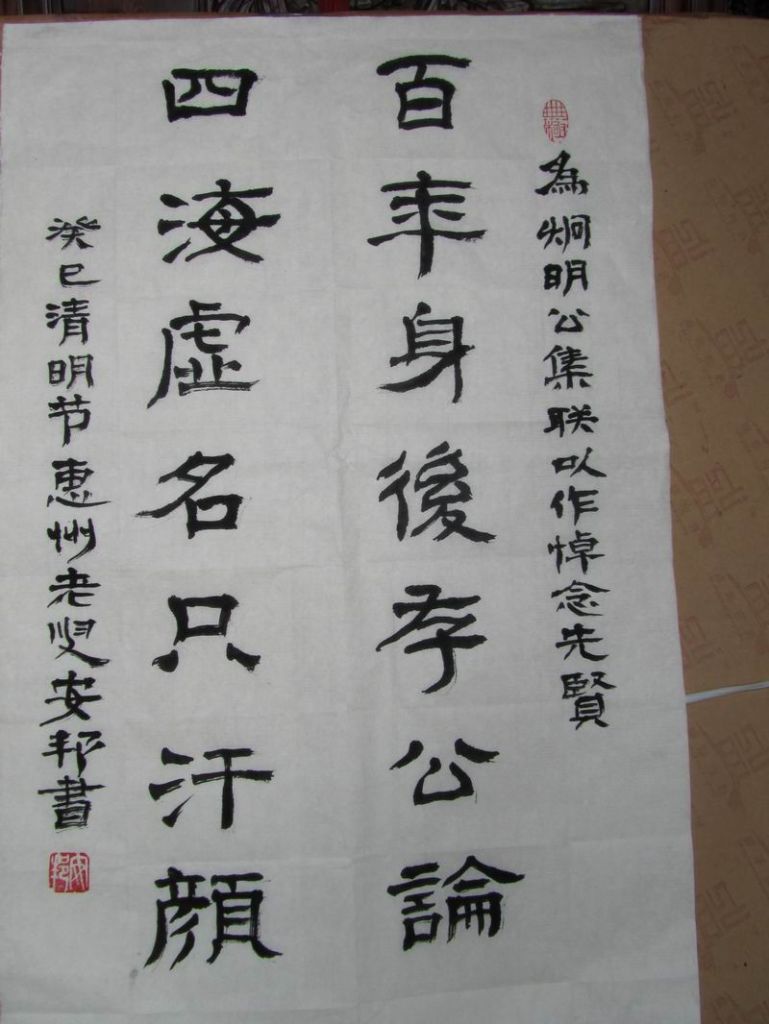 為炯明公集联以作悼念先賢
百年身後存公論
四海虛名只汗顔
癸巳清明节惠州老叟安邦書
安邦